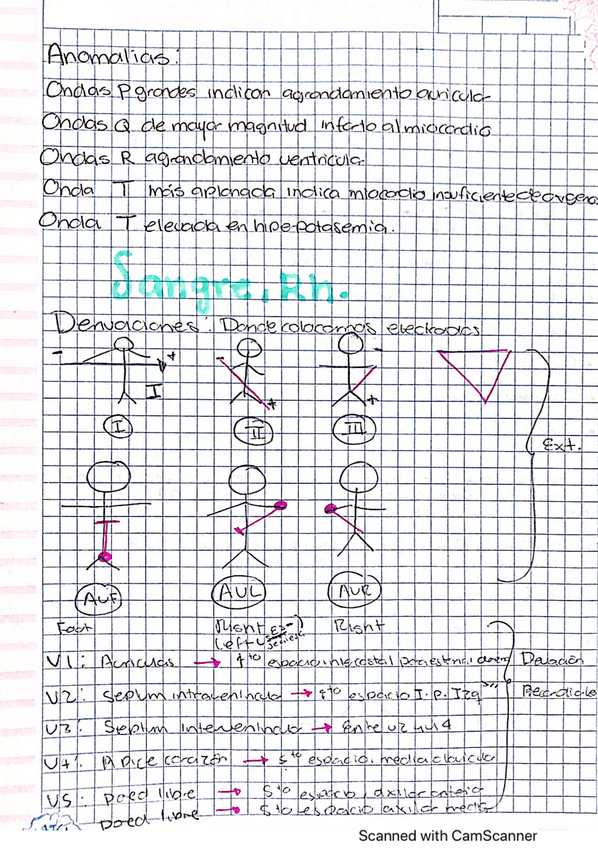 Anomalias:
Ondas P grandes indican agrandamiento auricular
Ondas Q de mayor magnitud infarto al miocardio
Ondas R agrandamiento ventricular
Onda T más aplanada indica miocardio insuficiente de oxigeno
Onda T elevada en hiperpotasemia.
Sangre, Rh.
Derivaciones: Donde colocamos electrodos
- + - + - +
I
I II III
Ext.
AVF AVL AVR
Foot Right Right
Left
V1: Auriculas → 4to espacio intercostal paraesternal Derivación
V2: Septum intraventricular → 4to espacio I.P. Izq Precordiales
V3: Septum interventricular → Entre V2 y V4
V4: Apice corazón → 5to espacio. media clavicular
V5: pared libre → 5to espacio, axilar anterior
pared libre → 5to espacio axilar media
Scanned with CamScanner